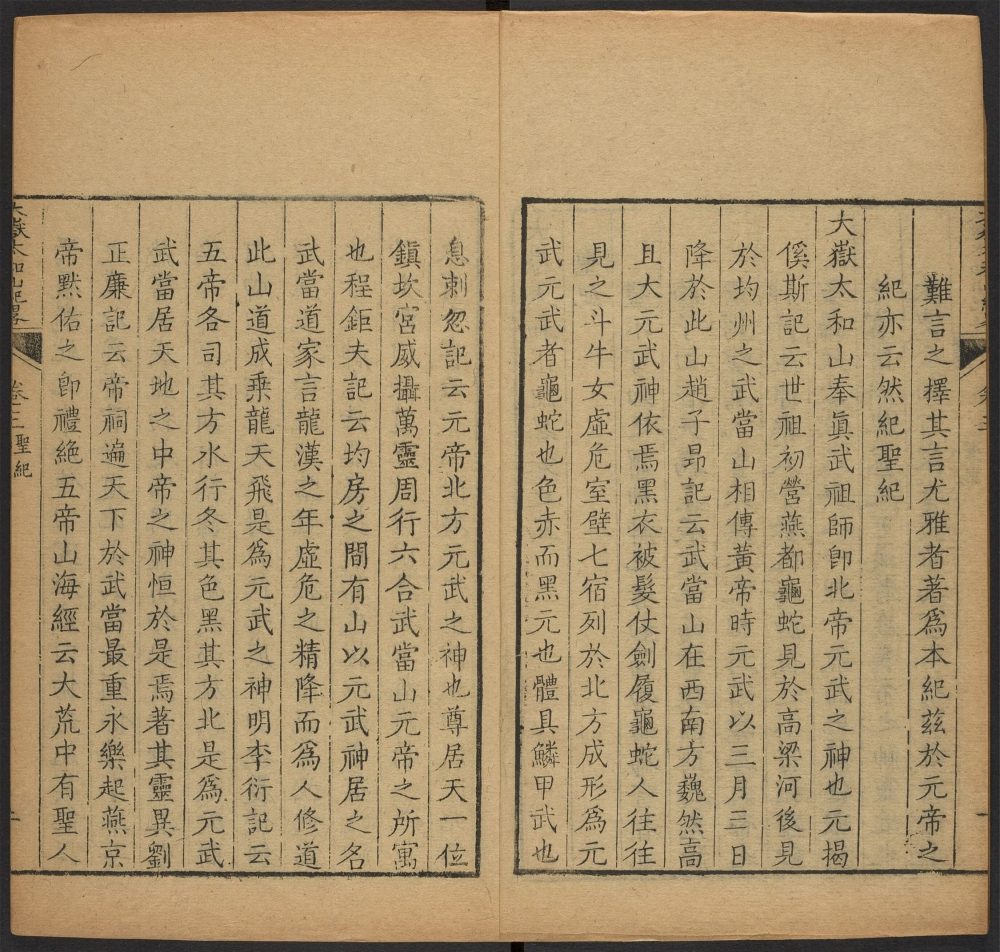 難言之擇其言尤雅者著爲本紀兹於元帝之
紀亦云然紀聖紀
大嶽太和山奉眞武祖師卽北帝元武之神也元揭
傒斯記云世祖初營燕都龜蛇見於高梁河後見
於均州之武當山相傳黃帝時元武以三月三日
降於此山趙子昻記云武當山在西南方巍然高
且大元武神依焉黑衣被髮仗劍履龜蛇人往往
見之斗牛女虛危室壁七宿列於北方成形爲元
武元武者龜蛇也色赤而黑元也體具鱗甲武也
息刺忽記云元帝北方元武之神也尊居天一位
鎭坎宮威攝萬靈周行六合武當山元帝之所寓
也程鉅夫記云均房之間有山以元武神居之名
武當道家言龍漢之年虛危之精降而爲人修道
此山道成乗龍天飛是爲元武之神明李衍記云
五帝各司其方水行冬其色黑其方北是爲元武
武當居天地之中帝之神恒於是焉著其靈異劉
正廉記云帝祠遍天下於武當最重永樂起燕京
帝黙佑之卽禮絶五帝山海經云大荒中有聖人
大嶽太和山紀畧
卷三
聖紀
二